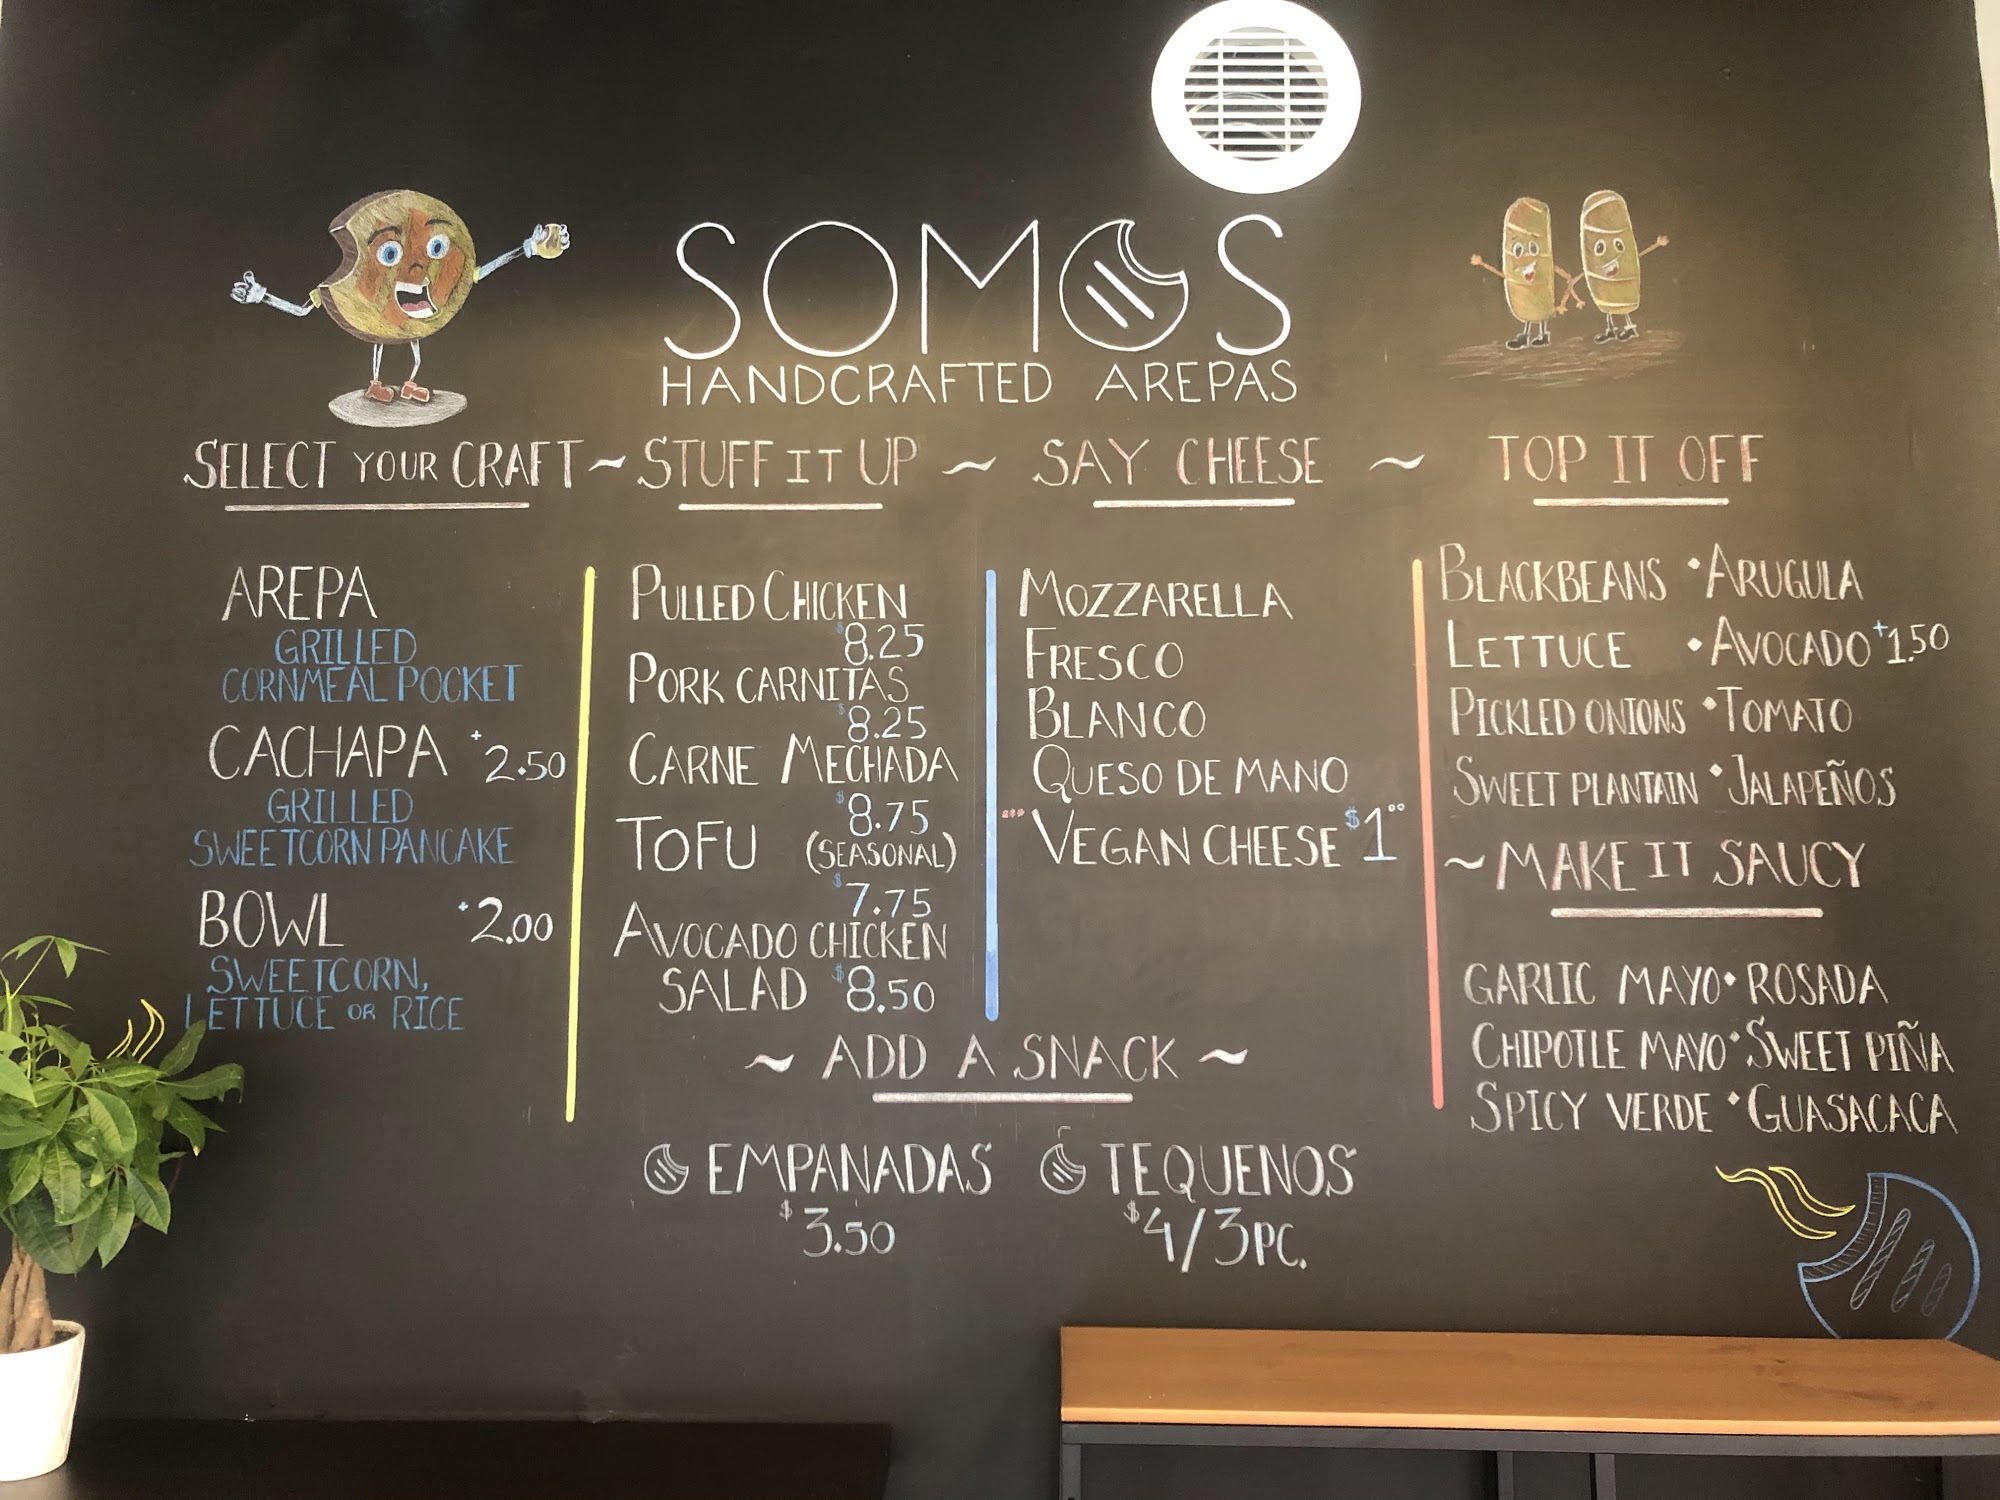 SOMOS
HANDCRAFTED AREPAS
SELECT YOUR CRAFT ~ STUFF IT UP ~ SAY CHEESE ~ TOP IT OFF
AREPA
GRILLED
CORNMEAL POCKET
CACHAPA +2.50
GRILLED
SWEETCORN PANCAKE
BOWL +2.00
SWEETCORN,
LETTUCE OR RICE
PULLED CHICKEN
$8.25
PORK CARNITAS
$8.25
CARNE MECHADA
$8.75
TOFU (SEASONAL)
$7.75
AVOCADO CHICKEN
SALAD $8.50
MOZZARELLA
FRESCO
BLANCO
QUESO DE MANO
*** VEGAN CHEESE $1.00
BLACKBEANS • ARUGULA
LETTUCE • AVOCADO +1.50
PICKLED ONIONS • TOMATO
SWEET PLANTAIN • JALAPEÑOS
~ MAKE IT SAUCY
GARLIC MAYO • ROSADA
CHIPOTLE MAYO • SWEET PIÑA
SPICY VERDE • GUASACACA
~ ADD A SNACK ~
EMPANADAS
$3.50
TEQUENOS
$4/3PC.